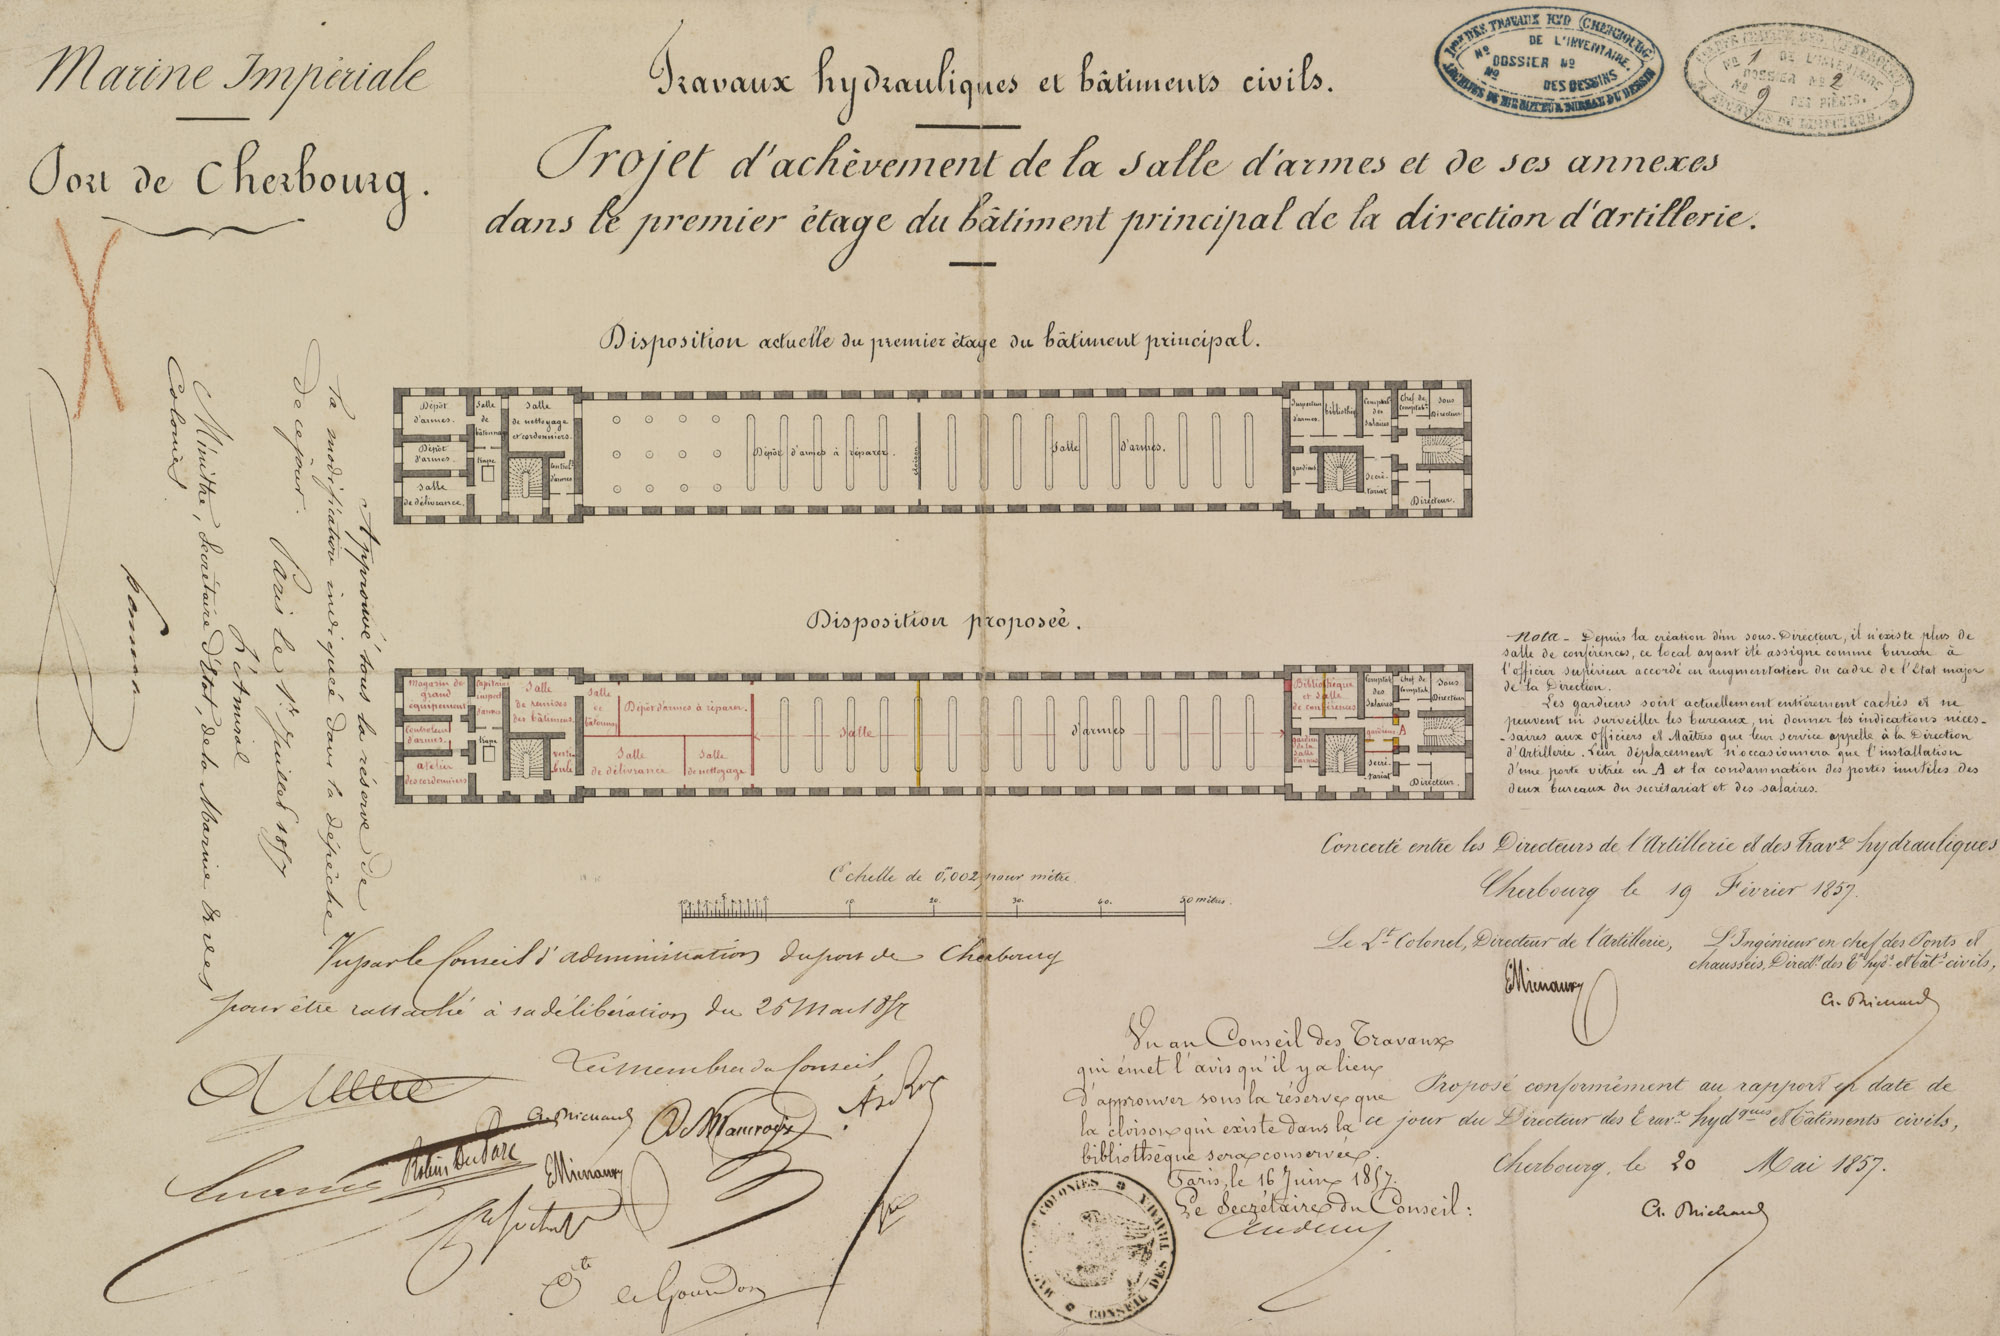 Marine Impériale
Port de Cherbourg.
Travaux hydrauliques et bâtiments civils.
Projet d'achèvement de la Salle d'armes et de ses annexes
dans le premier étage du bâtiment principal de la direction d'Artillerie.
DES TRAVAUX HYD (CHERBOURG)
No DE L'INVENTAIRE.
DOSSIER No
No DES DESSINS.
No 1 DE L'INVENTAIRE
DOSSIER No 2
No 9 DES PIÈCES.
Disposition actuelle du premier étage du bâtiment principal.
Dépôt
d'armes.
Dépôt
d'armes.
Salle
de délivrance.
Salle
de
trape
Salle
de nettoyage
et cordonniers.
Dépôt d'armes à réparer.
cloison
Salle d'armes.
d'armes.
biblioth
gardiens
Comptab
des
Salaires
Secré-
tariat
Chef de
Comptab
Sous
Directeur
Directeur.
Disposition proposée.
Magasin de
grand
équipement
Contrôleur
d'armes.
Atelier
des cordonniers
Capitaine
inspect
d'armes
trape
Salle
de remises
des bâtiments.
vesti-
bule
Salle
de
Dépôt d'armes à réparer.
Salle
de délivrance
Salle
de nettoyage
Salle d'armes
Bibliothèque
et salle
de conférences
gardien
de la
salle
d'armes
Comptab
des
Salaires
gardiens A
Secré-
tariat
Chef de
Comptab
Sous
Directeur
Directeur.
Nota - Depuis la création d'un sous-Directeur, il n'existe plus de
salle de conférences, ce local ayant été assigné comme bureau à
l'officier supérieur accordé en augmentation du cadre de l'Etat major
de la Direction.
Les gardiens sont actuellement entièrement cachés et ne
peuvent ni surveiller les bureaux, ni donner les indications néces-
-saires aux Officiers et Maîtres que leur service appelle à la Direction
d'Artillerie. Leur déplacement n'occasionnera que l'installation
d'une porte vitrée en A et la condamnation des portes inutiles des
deux bureaux du secrétariat et des salaires.
Echelle de 0m,002 pour mètre.
10 10. 20. 30. 40. 50 mètres.
Approuvé sous la réserve de
la modification indiquée dans la dépêche
de ce jour.
Paris le 1er Juillet 1857
L'Amiral
Ministre, Secrétaire d'Etat, de la Marine & des
Colonies
Concerté entre les Directeurs de l'Artillerie et des Travx hydrauliques
Cherbourg le 19 Février 1857.
Le Lt Colonel, Directeur de l'Artillerie,
L'Ingénieur en chef des Ponts et
chaussées, Directr des Tx hydqs et bâts civils,
Vu par le Conseil d'administration du port de Cherbourg
pour être rattaché à sa délibération du 25 Mai 1857
Les membres du Conseil,
Vu au Conseil des Travaux
qui émet l'avis qu'il y a lieu
d'approuver sous la réserve que
la cloison qui existe dans la
bibliothèque sera conservée.
Paris, le 16 Juin 1857.
Le Secrétaire du Conseil:
COLONIES
CONSEIL DES TRAVAUX
Proposé conformément au rapport en date de
ce jour du Directeur des Travx hydques et bâtiments civils,
Cherbourg, le 20 Mai 1857.